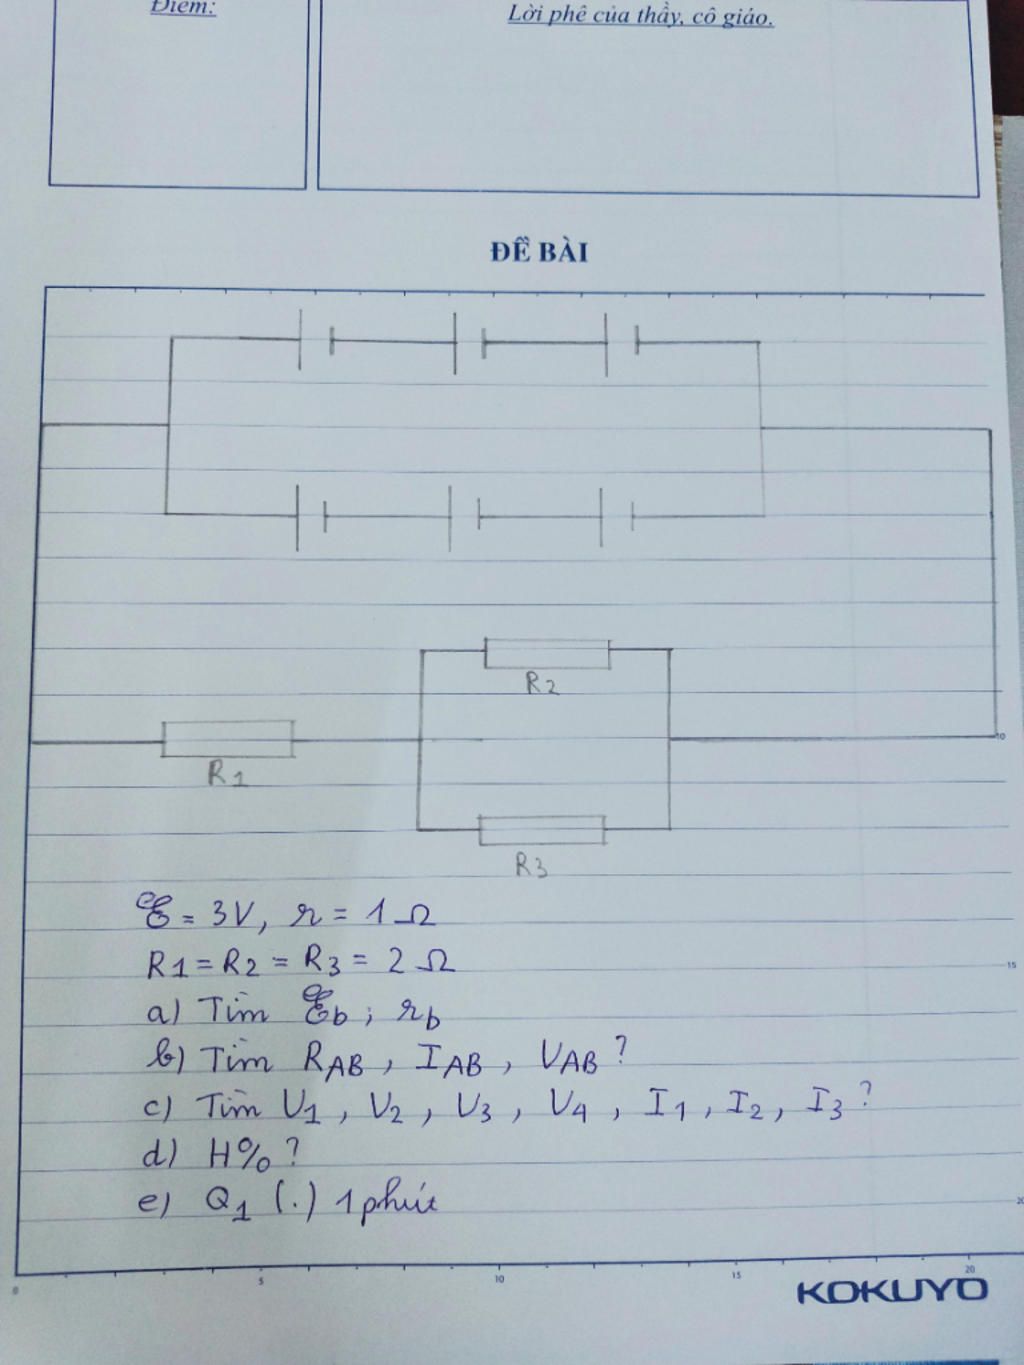 Điểm:
Lời phê của thầy, cô giáo.
ĐỀ BÀI
R2
R1
R3
10
ℰ = 3V, r = 1 Ω
R1 = R2 = R3 = 2 Ω
15
a) Tìm ℰb ; rb
b) Tìm RAB , IAB , UAB ?
c) Tìm U1 , U2 , U3 , U4 , I1 , I2 , I3 ?
d) H% ?
e) Q1 (.) 1 phút
20
0 5 10 15 20
KOKUYO